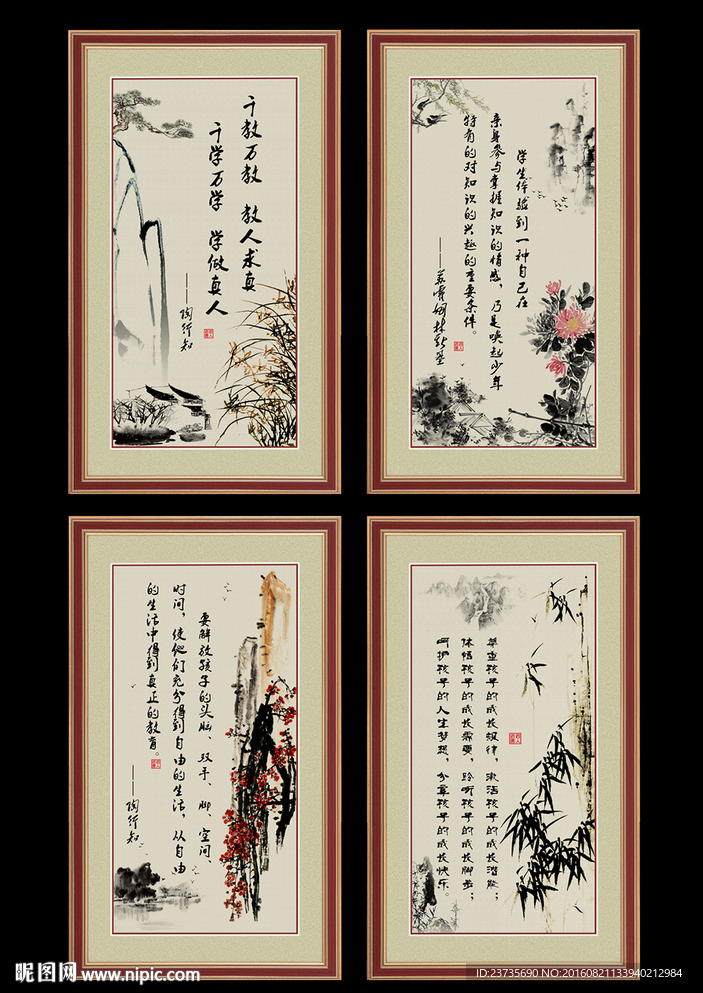 千教万教 教人求真
千学万学 学做真人
——陶行知
学生体验到一种自己在
亲身参与掌握知识的情感，乃是唤起少年
特有的对知识的兴趣的重要条件。
——苏霍姆林斯基
要解放孩子的头脑、双手、脚、空间、
时间，使他们充分得到自由的生活，从自由
的生活中得到真正的教育。
——陶行知
尊重孩子的成长规律，激活孩子的成长潜能；
体悟孩子的成长需要，聆听孩子的成长脚步；
呵护孩子的人生梦想，分享孩子的成长快乐。
昵图网 www.nipic.com
ID:23735690 NO:20160821133940212984